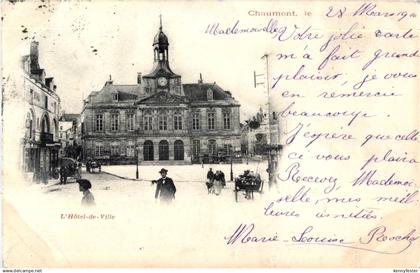 Chaumont, le 28 Mars 190
Mademoiselle
Votre jolie carte
m'a fait grand
plaisir, je vous
en remercie
beaucoup.
J'espère que celle
ce vous plaira
Recevez Mademoi
selle, mes meil
leures amitiés.
Marie-Louise Roche
L'Hôtel-de-Ville
kennyfester